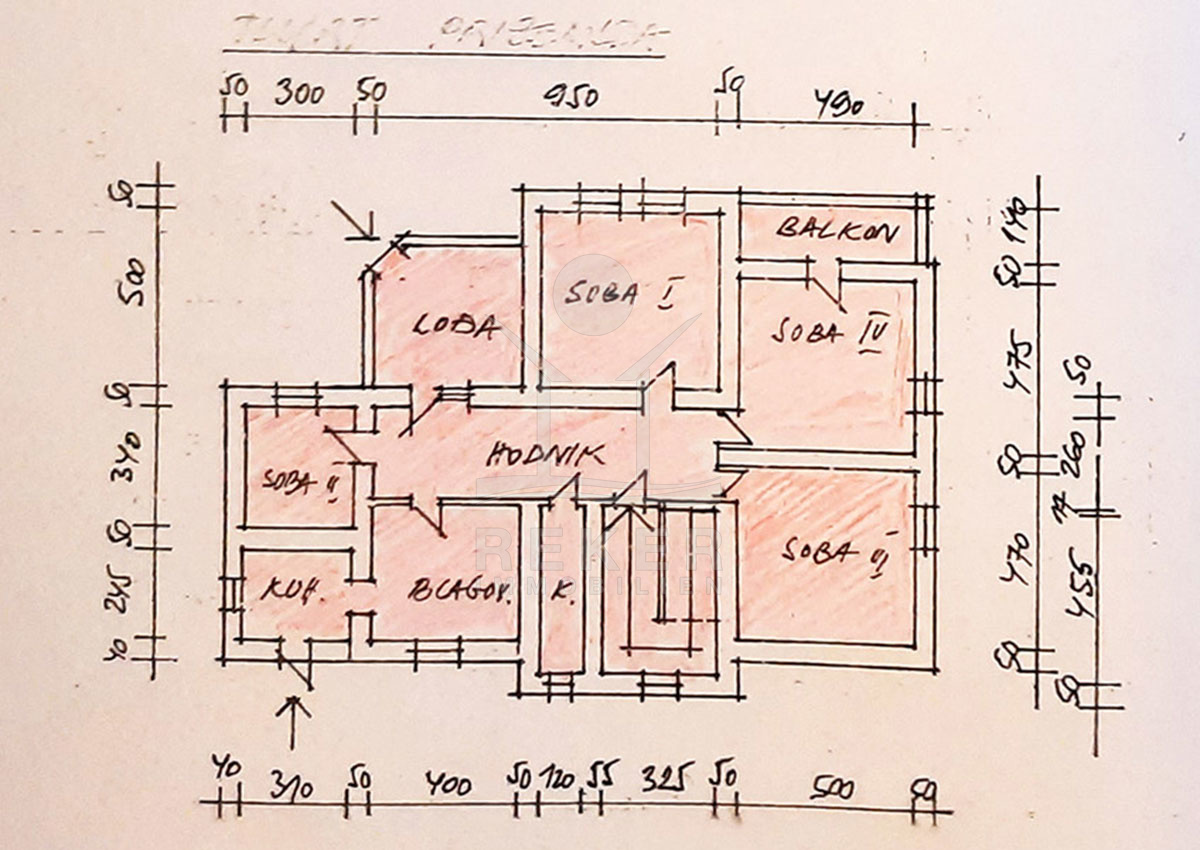 TLORT PRIZEMLJA
50 300 50 950 50 490
BALKON
SOBA I
LOĐA
SOBA IV
HODNIK
SOBA II
SOBA III
KUH.
BLAGOV.
K.
REKER
IMMOBILIEN
50
500
50
340
50
245
40
140
50
475
50
470
50
50
260
17
455
50
40 310 50 400 50 120 55 325 50 500 50